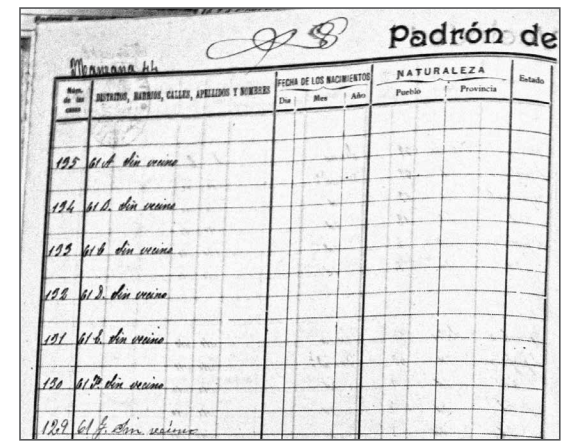 28
Padrón de
Manzana 44
Núm. de las casas
DISTRITOS, BARRIOS, CALLES, APELLIDOS Y NOMBRES
FECHA DE LOS NACIMIENTOS
NATURALEZA
Estado
Dia
Mes
Año
Pueblo
Provincia
135 61 A. Sin vecino
134 61 B. Sin vecino
133 61 C Sin vecino
132 61 D. Sin vecino
131 61 E. Sin vecino
130 61 F. Sin vecino
129 61 G. Sin vecino